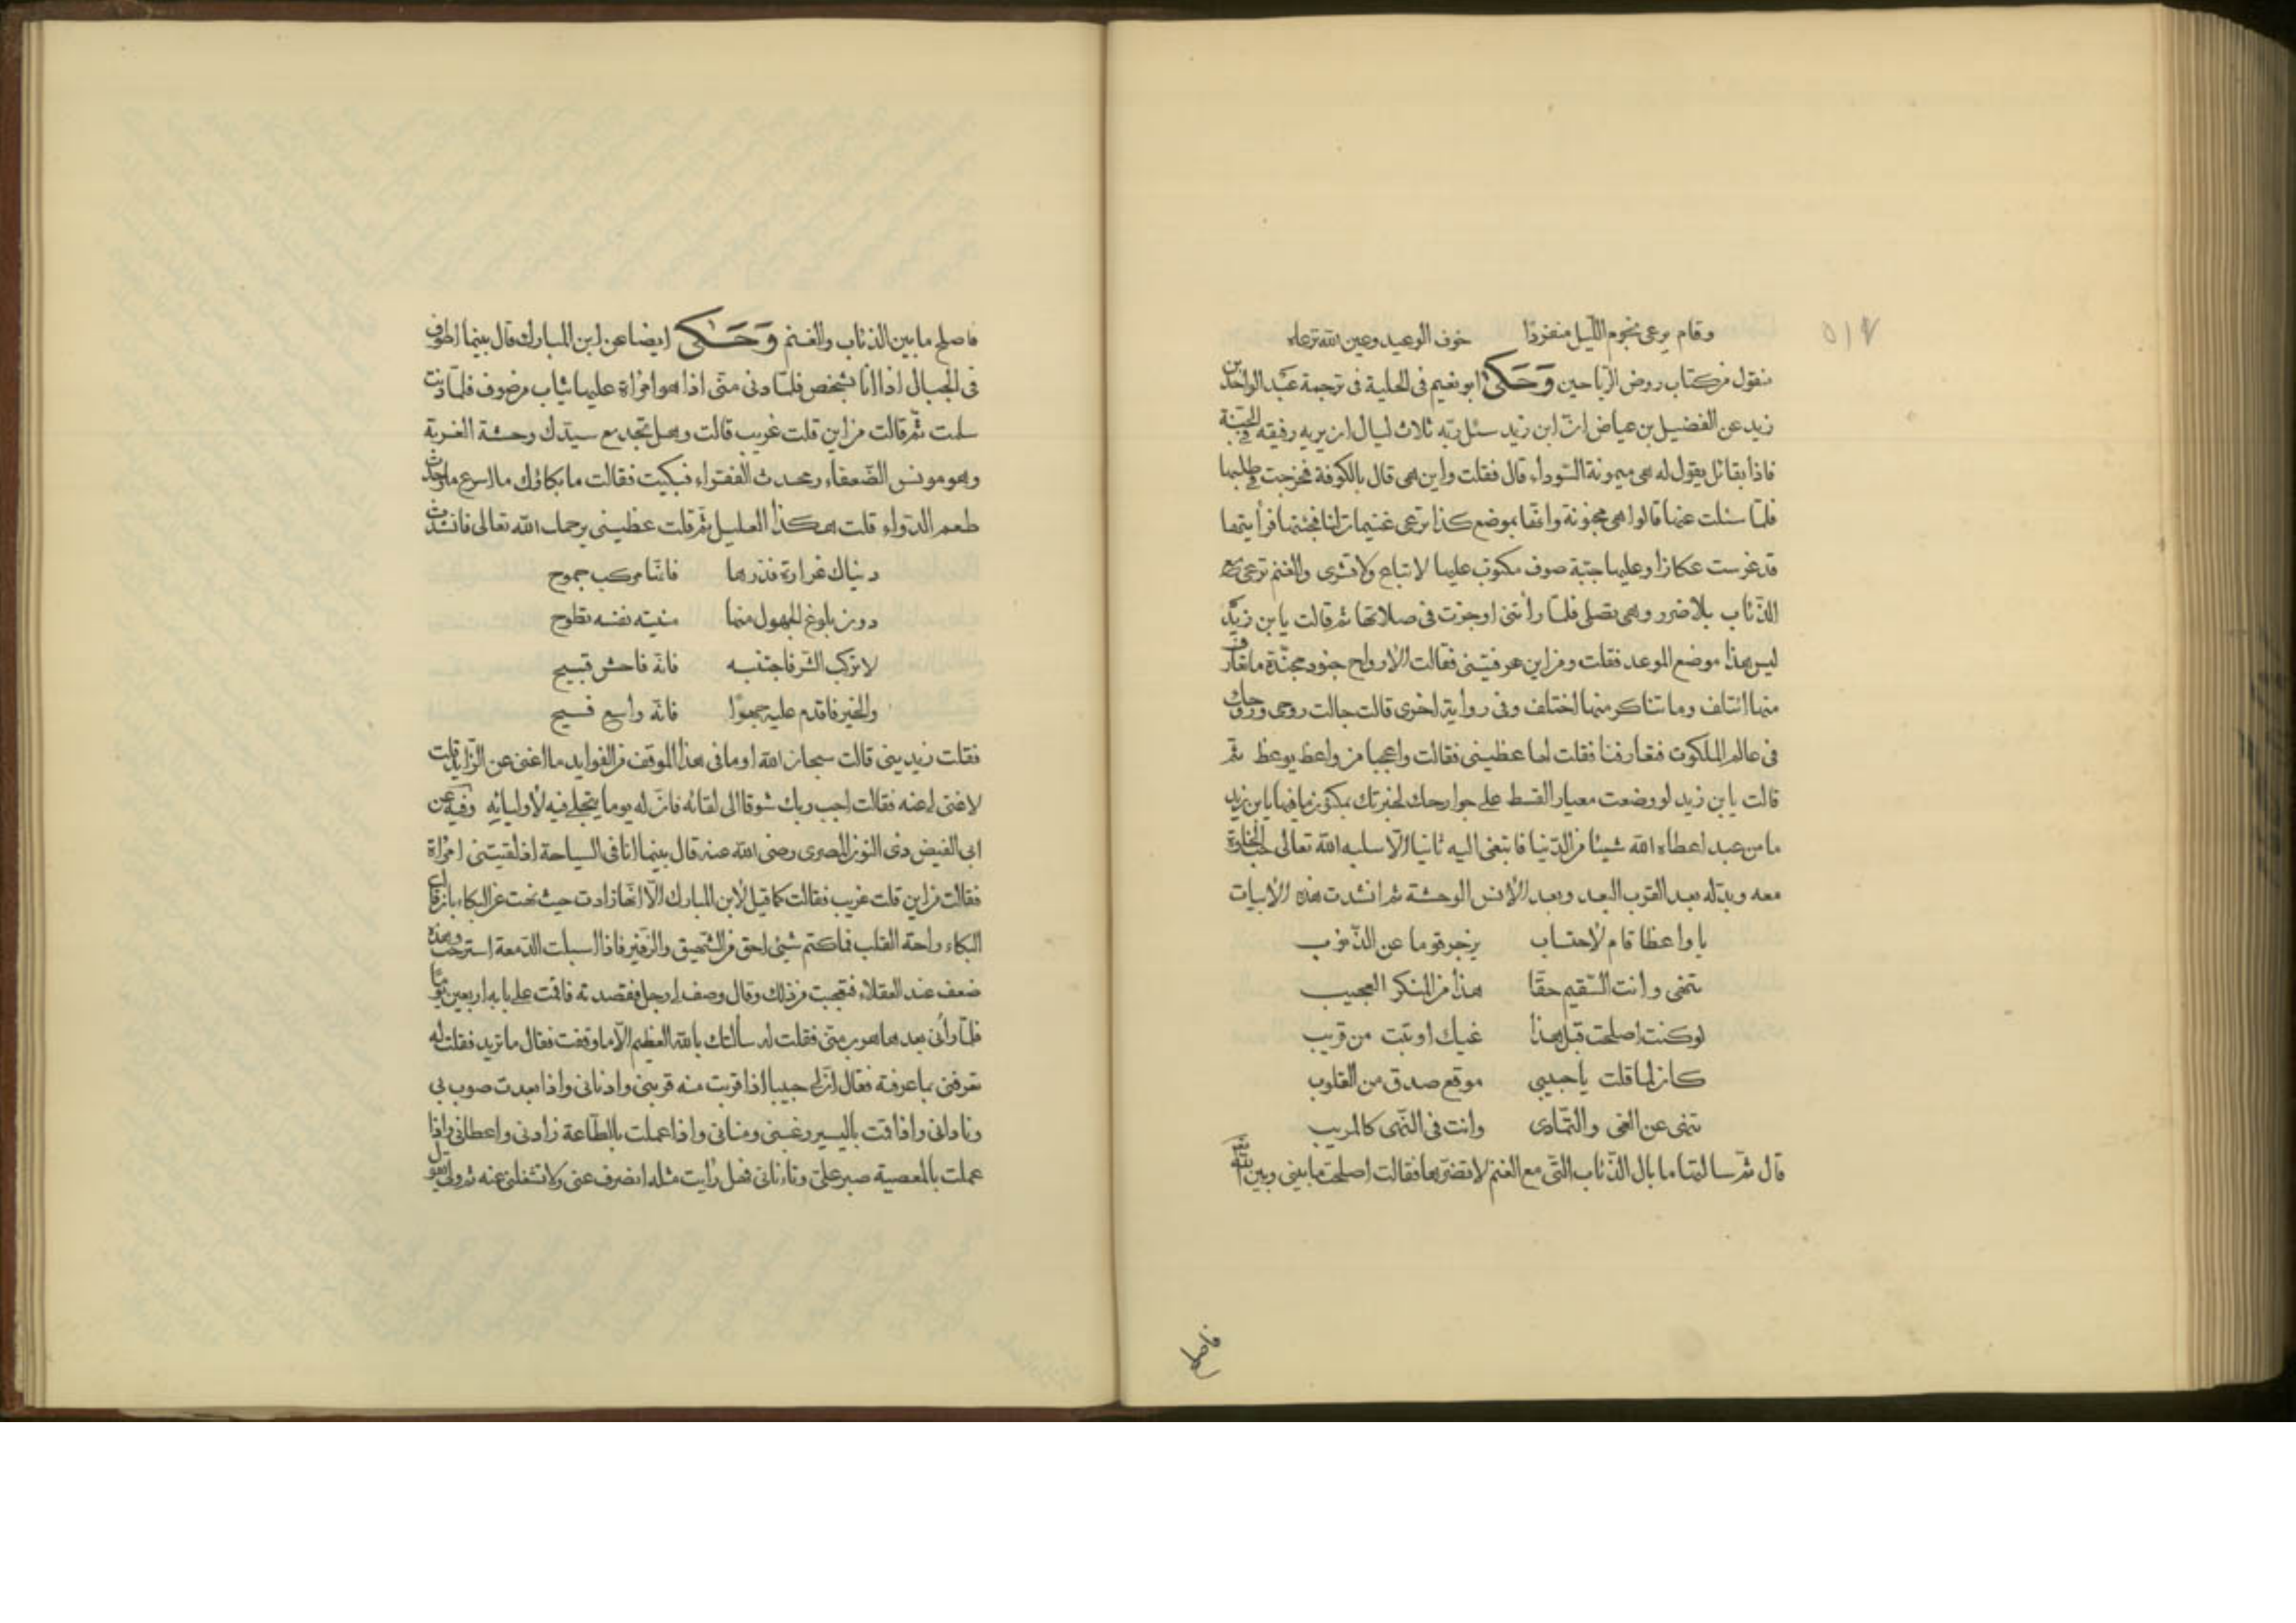 وقام يرعى نجوم الليل منفردا خوف الوعيد وعين الله ترعاه
منقول من كتاب روض الرياحين وَحَكى ابو نعيم فى الحلية فى ترجمة عبد الواحد بن
زيد عن الفضيل بن عياض انّ ابن زيد سئل ربّه ثلاث ليال ان يريه رفيقه فى الجنّة
فاذا بقائل يقول له هى ميمونة السّوداء قال فقلت واين هى قال بالكوفة فخرجت فى طلبها
فلمّا سئلت عنها قالوا هى مجنونة وانّها بموضع كذا ترعى غنيمات لنا فجئتها فرأيتها
قد غرست عكازا وعليها جبّة صوف مكتوب عليها لا تباع ولا تشرى والغنم ترعى مع
الذّئاب بلا ضرر وهى تصلى فلمّا رأتنى اوجزت فى صلاتها ثم قالت يابن زيد
ليس هذا موضع الموعد فقلت ومن اين عرفتينى فقالت الارواح جنود مجنّدة ما تعارف
منها ائتلف وما تناكر منها اختلف وفى رواية اخرى قالت جالت روحى وروحك
فى عالم الملكوت فتعارفنا فقلت لها عظينى فقالت واعجبا من واعظ يوعظ ثمّ
قالت يابن زيد لو وضعت معيار القسط على جوارحك لخبرتك بمكتوم ما فيها يابن زيد
ما من عبد اعطاه الله شيئا من الدّنيا فابتغى اليه ثانيا الّا سلبه الله تعالى حبّ الخلوة
معه وبدّله بعد القرب البعد وبعد الأنس الوحشة ثم انشدت هذه الأبيات
يا واعظا قام لاحتساب يزجر قوما عن الذّنوب
تنهى وانت السّقيم حقّا هذا من المنكر العجيب
لو كنت اصلحت قبل هذا غيك او تبت من قريب
كان لما قلت يا حبيبى موقع صدق من القلوب
تنهى عن الغى والتّمادى وانت فى النّهى كالمريب
قال ثمّ سالتها ما بال الذّئاب التّى مع الغنم لا تضرّها فقالت اصلحت ما بينى وبين الله
فاصلح
فاصلح ما بين الذئاب والغنم وَحَكى ايضا عن ابن المبارك قال بينما اطوف
فى الجبال اذا انا بشخص فلمّا دنى منّى اذا هو امرأة عليها ثياب من صوف فلمّا دنت
سلمت ثمّ قالت من اين قلت غريب قالت وهل تجد مع سيّدك وحشة الغربة
وهو مونس الضّعفاء ومحدث الفقراء فبكيت فقالت ما بكاؤك ما اسرع ما وجدت
طعم الدّواء قلت هكذا العليل ثمّ قلت عظينى يرحمك الله تعالى فانشدت
دنياك غرارة فذرها فانّها مركب جموح
دون بلوغ الجهول منها منيته نفسه تطوح
لا تركب الشّر فاجتنبه فانّه فاحش قبيح
والخير فاقدم عليه جهرًا فانّه واسع فسيح
فقلت زيدينى قالت سبحان الله اوما فى هذا الموقف من الفوايد ما اغنى عن الزّايد قلت
لا غنى لى عنه فقالت احب ربك شوقا الى لقائه فانّ له يوما يتجلى فيه لأوليائه وفيه عن
ابى الفيض ذى النون المصرى رضى الله عنه قال بينما انا فى السياحة اذ لقيتنى امرأة
فقالت من اين قلت غريب فقالت كما قيل لأبن المبارك الّا انّها زادت حيث نهت عن البكاء
البكاء راحة القلب فما كتم شئ احق من الشّهيق والزّفير فاذا اسبلت الدّمعة استرحت وهذه
ضعف عند العقلاء فتعجبت من ذلك وقال وصف لى رجل فقصدته فاقمت على بابه اربعين يوما
فلمّا رأنى بعدها هرب منّى فقلت له سألتك بالله العظيم الّا ما وقفت فقال ما تريد فقلت له
تعرفنى بما عرفته فقال انّ لى حبيبا اذا قربت منه قربنى وادنانى واذا بعدت صوب بى
ونادانى واذا قمت باليسير رغبنى ومنانى واذا عملت بالطّاعة زادنى واعطانى واذا
عملت بالمعصية صبر علىّ وتانانى فهل رأيت مثله انصرف عنى ولا تشغلنى عنه ثم ولى يقول